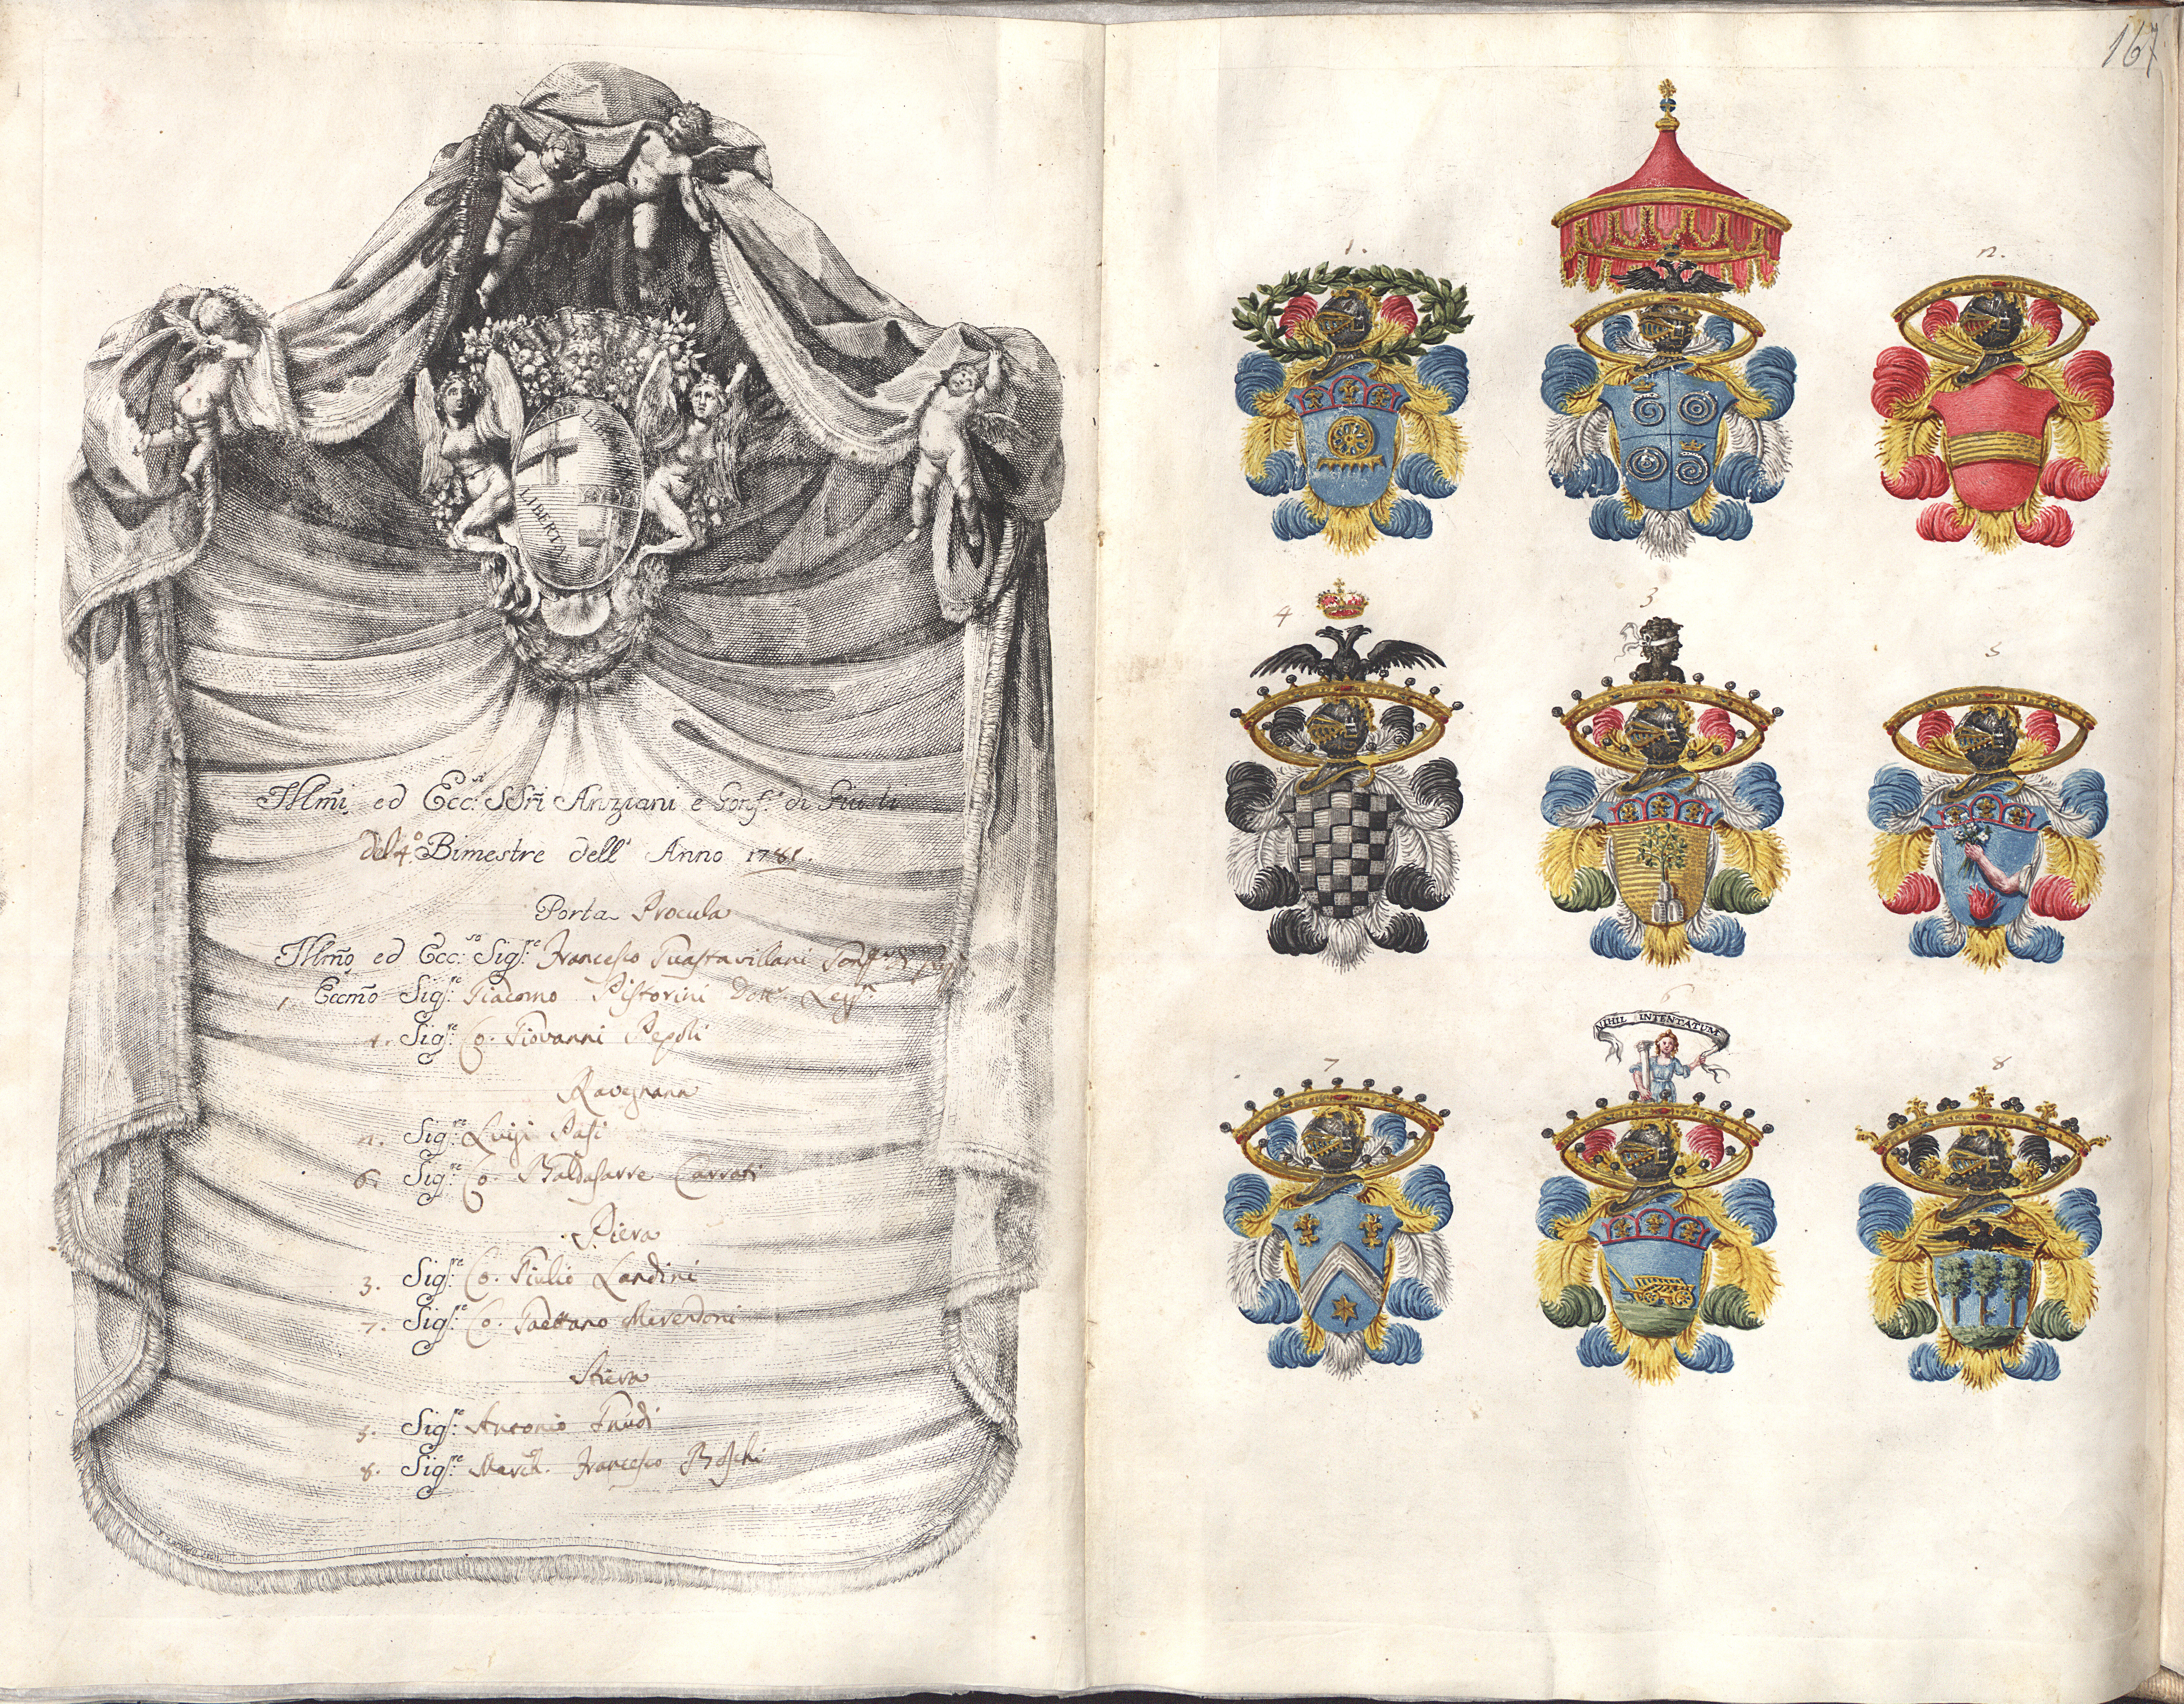 LIBERTAS
Illm̃i ed Ecc.si SSri Anziani e Gonf.i di Giusti
del 4.o Bimestre dell' Anno 1781.
Porta Procula
Illm̃o ed Ecc.so Sig.re Francesco Guastavillani Gonf.re
1 Eccm̃o Sig.re Giacomo Pistorini Dott.
4. Sig.re Co. Giovanni Pepoli
Ravegnana
2. Sig.re Luigi Pasi
6. Sig.re Co. Baldasarre Carrati
Piera
3. Sig.re Co. Giulio Landini
7. Sig.re Co. Gaettano Merendoni
Stiera
5. Sig.re Antonio Gnudi
8. Sig.re March. Francesco Boschi
167
1.
2.
4
3
5
6
NIHIL INTENTATUM
7
8